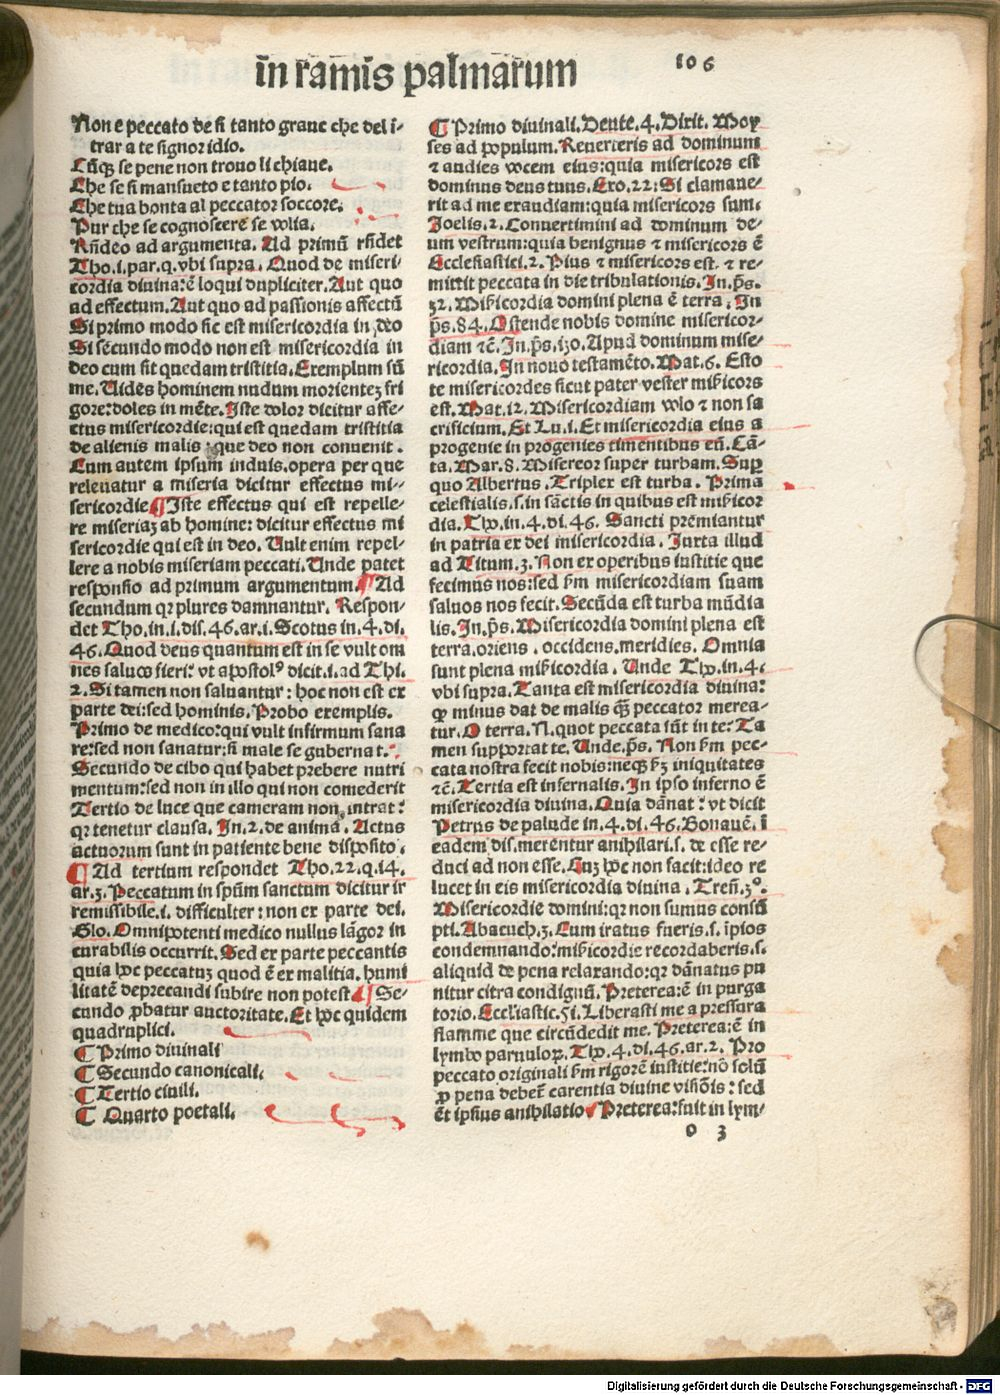 in ramis palmarum
106
Non e peccato de si tanto graue che del i-
trar a te signor idio.
Cūq̄ se pene non trouo li chiaue.
Che se si mansueto e tanto pio.
Che tua bonta al peccator soccore.
Pur che se cognoscere se volia.
Rn̄deo ad argumenta. Ad primū rn̄det
Tho.i.par.q.vbi supra. Quod de miseri-
cordia diuina: ē loqui dupliciter. Aut quo
ad effectum. Aut quo ad passionis affectū
Si primo modo sic est misericordia in deo
Si secundo modo non est misericordia in
deo cum sit quedam tristitia. Exemplum sū
me. Uides hominem nudum morientez fri
gore: doles in mēte. Iste dolor dicitur affe-
ctus misericordie: qui est quedam tristitia
de alienis malis: que deo non conuenit.
Cum autem ipsum induis. opera per que
releuatur a miseria dicitur effectus mi-
sericordie ¶ Iste effectus qui est repelle-
re miseriaz ab homine: dicitur effectus mi
sericordie qui est in deo. Uult enim repel-
lere a nobis miseriam peccati. Unde patet
responsio ad primum argumentum ¶ Ad
secundum qr plures damnantur. Respon-
det Tho.in.i.dis.46.ar.i. Scotus in.4.di.
46. Quod deus quantum est in se vult om
nes saluos fieri: vt apostolꝰ dicit.i.ad Thi.
2. Si tamen non saluantur: hoc non est ex
parte dei: sed hominis. Probo exemplis.
Primo de medico: qui vult infirmum sana
re: sed non sanatur: si male se gubernat.
Secundo de cibo qui habet prebere nutri
mentum: sed non in illo qui non comederit
Tertio de luce que cameram non intrat:
qr tenetur clausa. In.2.de anima. Actus
actuorum sunt in patiente bene disposito.
¶ Ad tertium respondet Tho.22.q.14.
ar.3. Peccatum in spūm sanctum dicitur ir
remissibile.i. difficulter: non ex parte dei.
Glo. Omnipotenti medico nullus lāgor in
curabilis occurrit. Sed ex parte peccantis
quia hoc peccatuz quod ē ex malitia. humi
litatē deprecandi subire non potest ¶ Se-
cundo ꝓbatur auctoritate. Et hoc quidem
quadruplici.
¶ Primo diuinali
¶ Secundo canonicali.
¶ Tertio ciuili.
¶ Quarto poetali.
¶ Primo diuinali. Deute.4. Dixit. Moy
ses ad populum. Reuerteris ad dominum
⁊ audies vocem eius: quia misericors est
dominus deus tuus. Exo.22: Si clamaue-
rit ad me exaudiam: quia misericors sum.
Joelis.2. Conuertimini ad dominum de-
um vestrum: quia benignus ⁊ misericors ē
Ecclesiastici.2. Pius ⁊ misericors est. ⁊ re-
mittit peccata in die tribulationis. In.p̄s.
32. Mīcordia domini plena ē terra. In
p̄s.84. Ostende nobis domine misericor-
diam ⁊c̄. In.p̄s.i20. Apud dominum mise-
ricordia. In nouo testamēto. Mat.6. Esto
te misericordes sicut pater vester mīcors
est. Mat.12. Misericordiam volo ⁊ non sa
crificium. Et Lu.i. Et misericordia eius a
progenie in progenies timentibus eū. Cā-
ta. Mar.8. Misereor super turbam. Suꝑ
quo Albertus. Triplex est turba. Prima
celestialis.s. in sāctis in quibus est mīcor
dia. Tho.in.4.di.46. Sancti premiantur
in patria ex dei misericordia. Iuxta illud
ad Titum.3. Non ex operibus iustitie que
fecimus nos: sed s̄m misericordiam suam
saluos nos fecit. Secūda est turba mūdia
lis. In.p̄s. Misericordia domini plena est
terra. oriens. occidens. meridies. Omnia
sunt plena mīcordia. Unde Tho.in.4.
vbi supra. Tanta est misericordia diuina:
ꝙ minus dat de malis q̄ꝫ peccator merea-
tur. O terra. N. quot peccata sūt in te: Ta
men supportat te. Unde.p̄s. Non s̄m pec-
cata nostra fecit nobis: neqꝫ s̄z iniquitates
⁊c̄. Tertia est infernalis. In ipso inferno ē
misericordia diuina. Quia dānat: vt dicit
Petrus de palude in.4.di.46. Bonauē. ī
eadem dis. merentur anihilari.s. de esse re-
duci ad non esse. Luz hoc non facit: ideo re
lucet in eis misericordia diuina. Treñ.3º.
Misericordie domini: qr non sumus consū
pti. Abacuch.3. Cum iratus fueris.s. īpios
condemnando: mīcordie recordaberis.s.
aliquid de pena relaxando: qr dānatus pu
nitur citra condignū. Preterea: ē in purga
torio. Eccl'iastic.51. Liberasti me a pressura
flamme que circūdedit me. Preterea: ē in
lymbo paruuloꝝ. Tho.4.di.46.ar.2. Pro
peccato originali s̄m rigorē institie: nō solū
ꝓ pena debet̄ carentia diuine visiōis: sed
ēt ipsius anihilatio ¶ Preterea: fuit in lym-
o 3
Digitalisierung gefördert durch die Deutsche Forschungsgemeinschaft - DFG